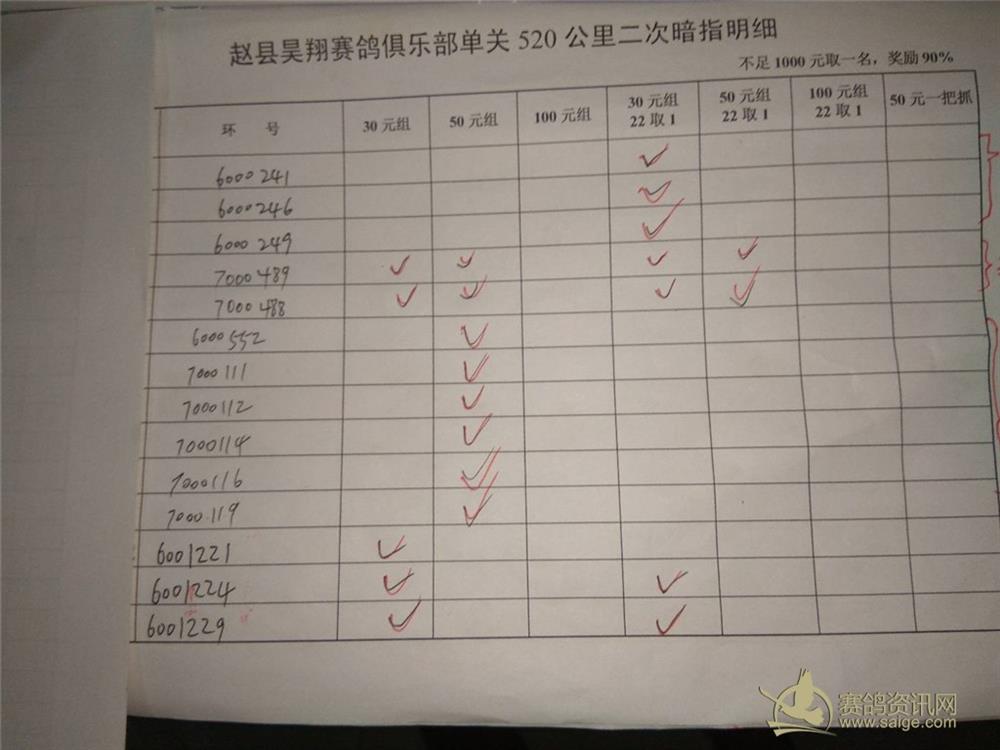 赵县昊翔赛鸽俱乐部单关 520 公里二次暗指明细
不足 1000 元取一名，奖励 90%
环 号 30 元组 50 元组 100 元组 30 元组 22 取 1 50 元组 22 取 1 100 元组 22 取 1 50 元一把抓
6000 241 ✓
6000 246 ✓
6000 249 ✓
7000 489 ✓ ✓ ✓ ✓
7000 488 ✓ ✓ ✓ ✓
6000 552 ✓
7000 111 ✓
7000 112 ✓
7000 114 ✓
7000 116 ✓
7000 119 ✓
6001221 ✓
6001224 ✓ ✓
6001229 ✓ ✓
赛鸽资讯网
www.saige.com